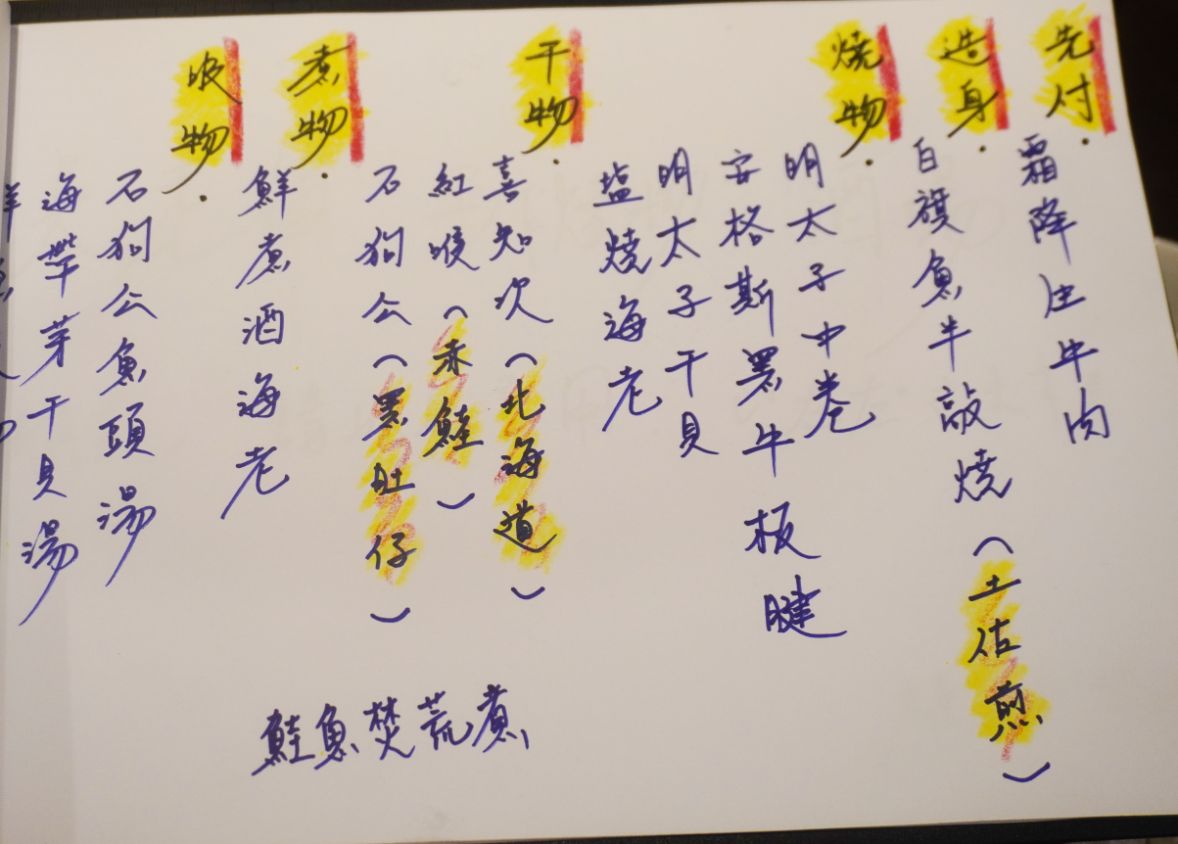 先付・
霜降庄牛肉
造身・
白旗魚牛敲燒(土佐煎)
燒物・
明太子中卷
安格斯黑牛板腱
明太子干貝
塩燒海老
干物・
喜知次(北海道)
紅喉(赤鯥)
石狗公(黑肚仔)
煮物・
鮮煮酒海老
鮭魚焚荒煮
吸物・
石狗公魚頭湯
海帶芽干貝湯